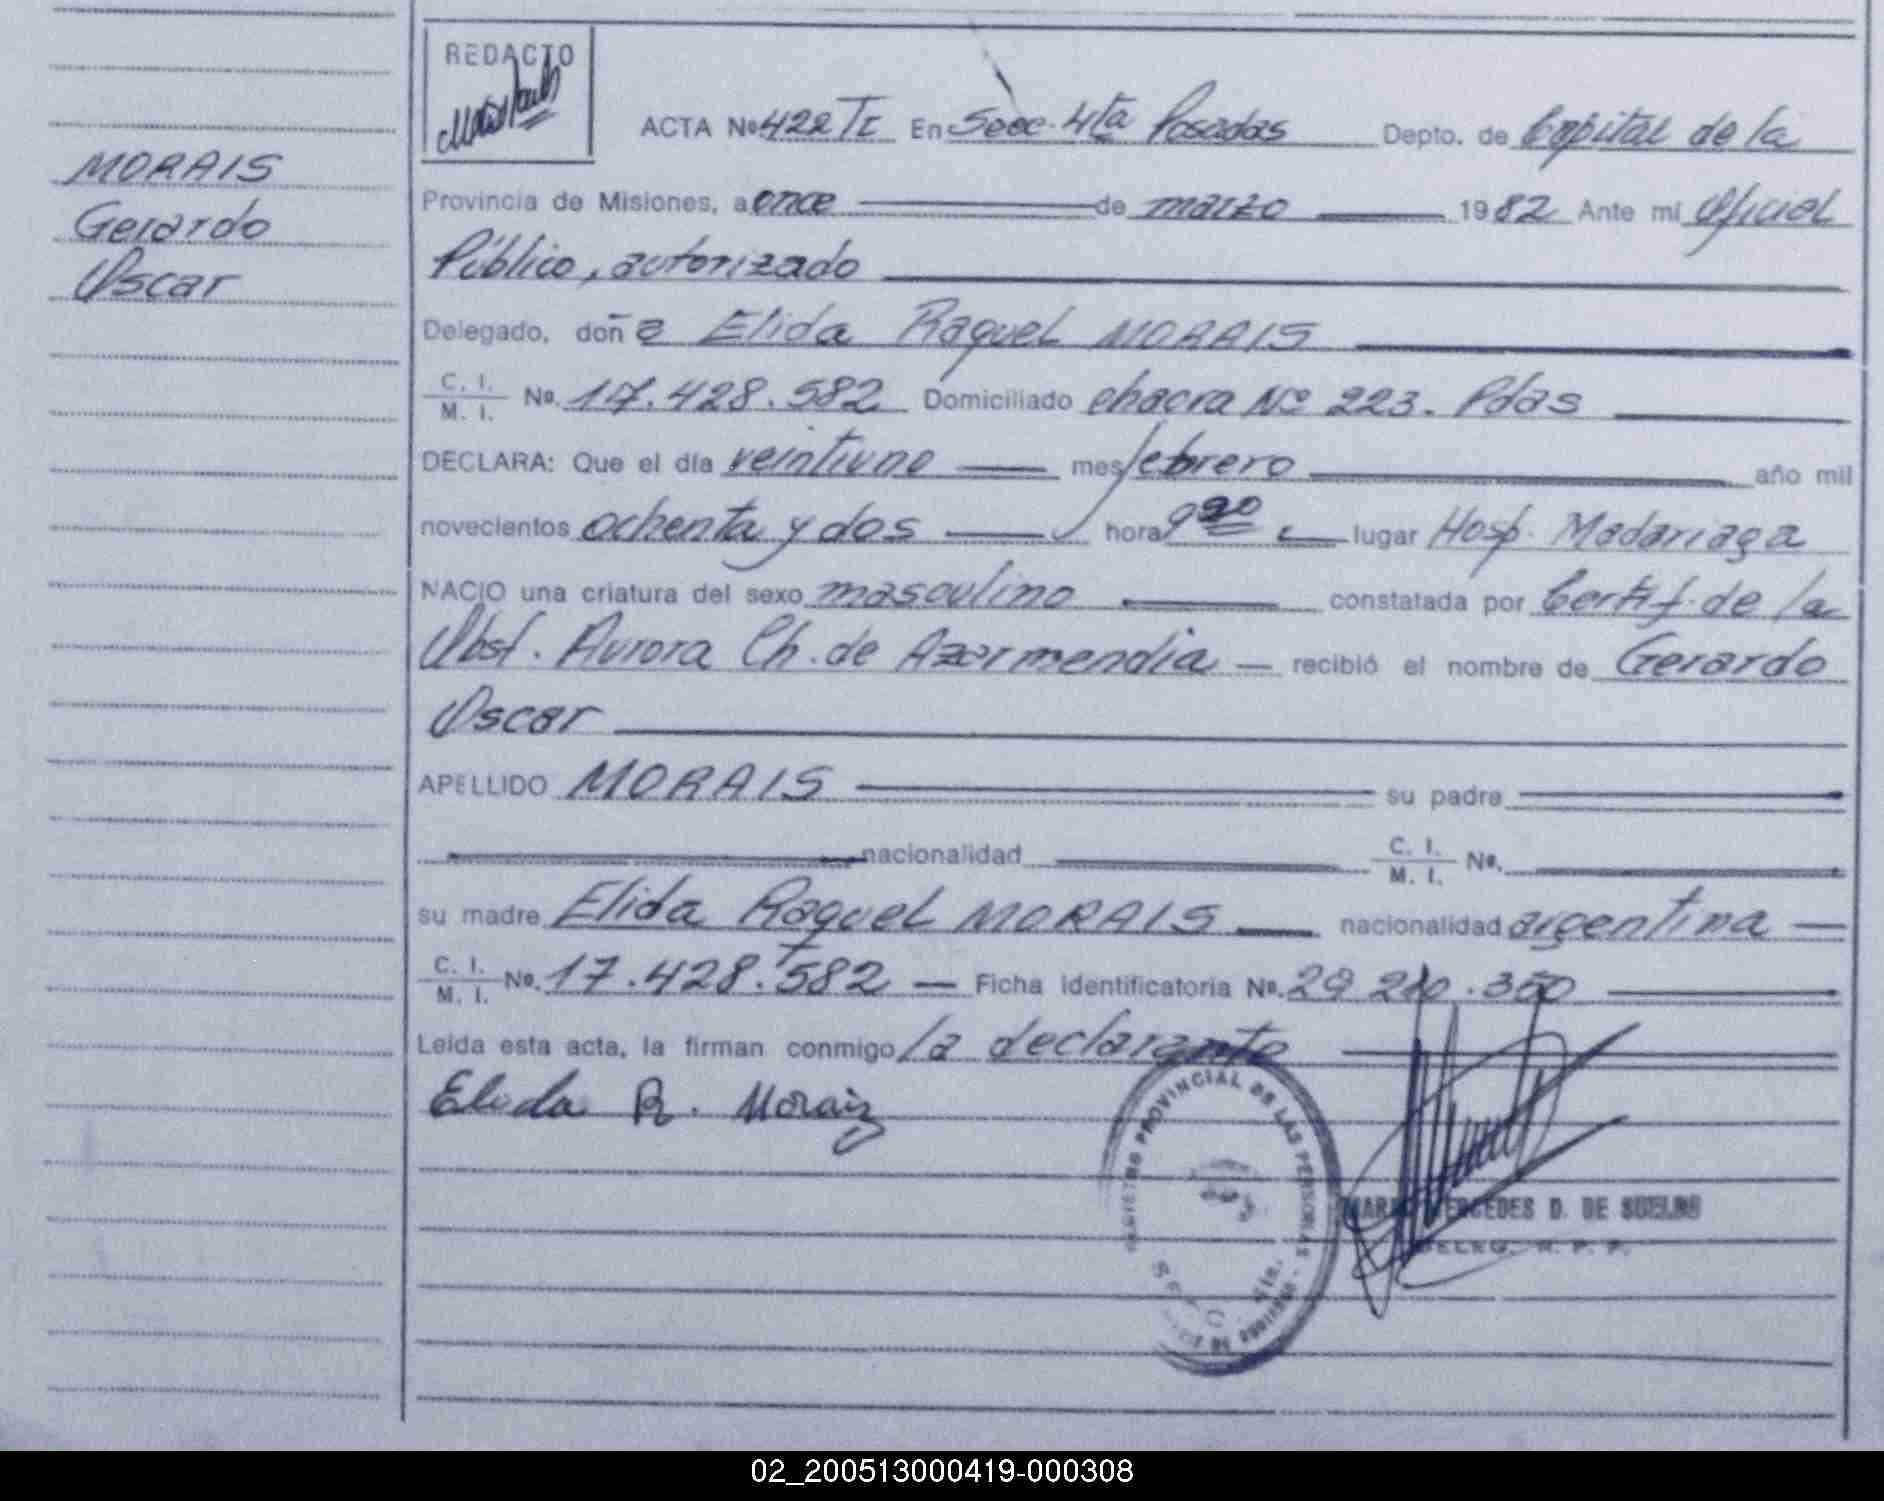 REDACTO
ACTA Nº 422 TI En Secc. 4ta Posadas Depto. de Capital de la
MORAIS
Gerardo
Oscar
Provincia de Misiones, a once de marzo 1982 Ante mí Oficial
Público, autorizado
Delegado, doña Elida Raquel MORAIS
C. I.
M. I. Nº. 17.428.582 Domiciliado chacra Nº 223. Pdas
DECLARA: Que el día veintiuno mes febrero año mil
novecientos ochenta y dos hora 9 20 lugar Hosp. Madariaga
NACIO una criatura del sexo masculino constatada por Certif. de la
Obst. Aurora Ch. de Azarmendia recibió el nombre de Gerardo
Oscar
APELLIDO MORAIS su padre
nacionalidad C. I.
M. I. Nº.
su madre Elida Raquel MORAIS nacionalidad argentina
C. I.
M. I. Nº. 17.428.582 Ficha Identificatoria Nº. 29 210.350
Leída esta acta, la firman conmigo la declarante
Elida R. Moraiz
REGISTRO PROVINCIAL DE LAS PERSONAS
SECC. 4ta.
MARIA MERCEDES D. DE SUELDO
DELEG. R. P. P.
02_200513000419-000308